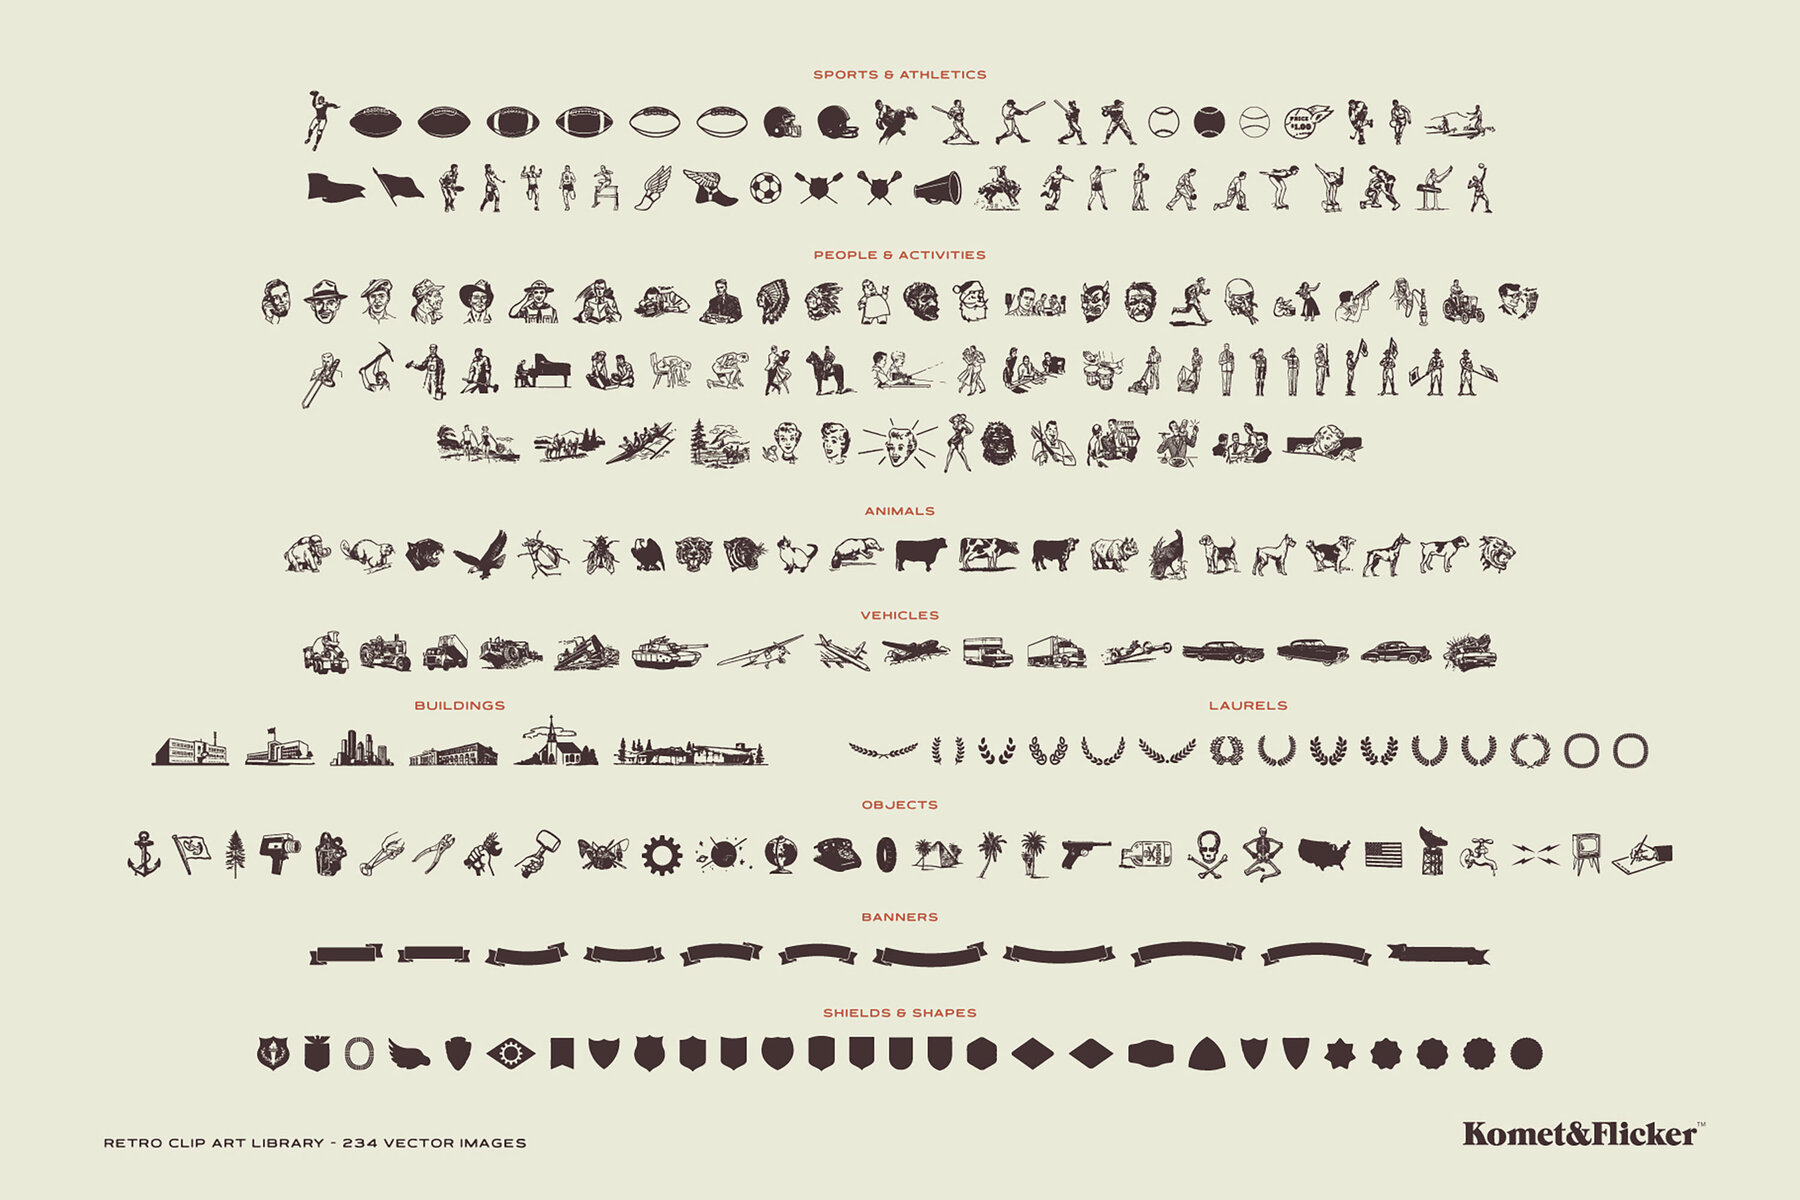 SPORTS & ATHLETICS
PRICE
$1.00
PEOPLE & ACTIVITIES
ANIMALS
VEHICLES
BUILDINGS
LAURELS
OBJECTS
BANNERS
SHIELDS & SHAPES
RETRO CLIP ART LIBRARY - 234 VECTOR IMAGES
Komet&Flicker™